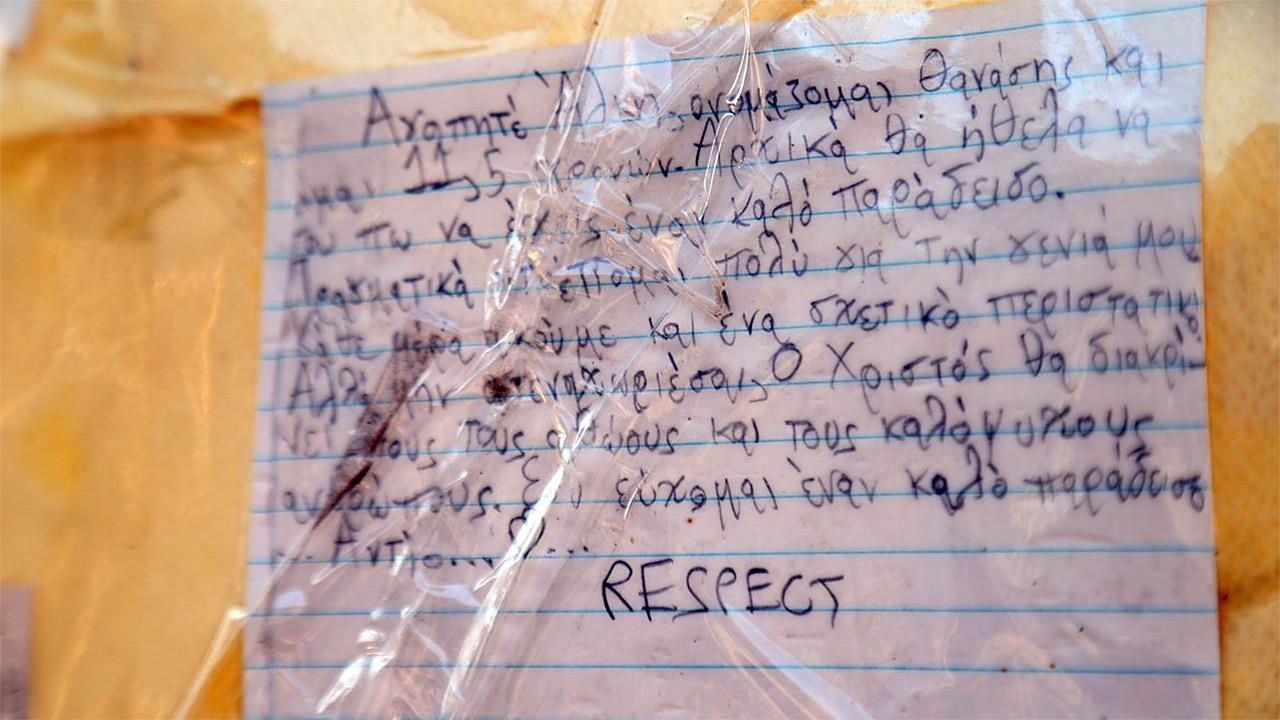 Αγαπητέ Άλκη, ονομάζομαι Θανάσης και
ημαι 11,5 χρονών. Αρχικά θα ήθελα να
σου πω να έχεις έναν καλό παράδεισο.
Πραγματικά ντρέπομαι πολύ για την γενιά μου
Κάθε μέρα ακούμε και ένα σχετικό περιστατικό
Αλλά μην στεναχωριέσαι, Ο Χριστός θα διακρί-
νει τους αθώους και τους καλόψυχους
ανθρώπους. Σου εύχομαι έναν καλό παράδεισο
... Αντίο...
RESPECT